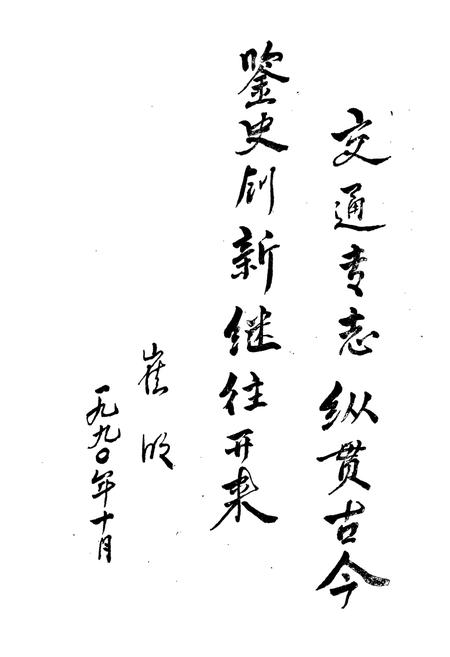 交通专志纵贯古今
鉴史创新继往开来
崔明
一九九〇年十月